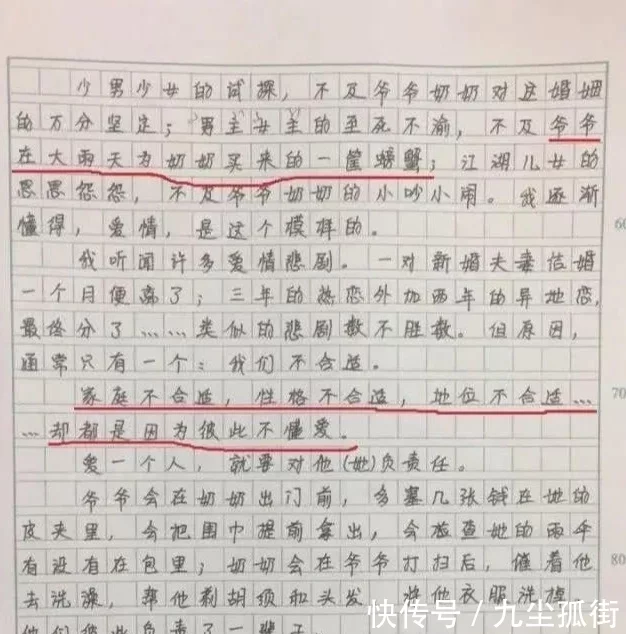 少男少女的试探，不及爷爷奶奶对这婚姻
的万分坚定；男主女主的至死不渝，不及爷爷
在大雨天为奶奶买来的一筐螃蟹；江湖儿女的
恩恩怨怨，不及爷爷奶奶的小吵小闹。我逐渐
懂得，爱情，是这个模样的。
我听闻许多爱情悲剧。一对新婚夫妻结婚
一个月便离了；三年的热恋外加两年的异地恋，
最终分了……类似的悲剧数不胜数。但原因，
通常只有一个：我们不合适。
家庭不合适，性格不合适，地位不合适…
…却都是因为彼此不懂爱。
爱一个人，就要对他(她)负责任。
爷爷会在奶奶出门前，多塞几张钱在她的
皮夹里，会把围巾提前拿出，会检查她的雨伞
有没有在包里；奶奶会在爷爷打扫后，催着他
去洗澡，帮他剃胡须和头发，将他衣服洗掉。
他们彼此负责了一辈子
60
70
80
快传号／九尘孤街